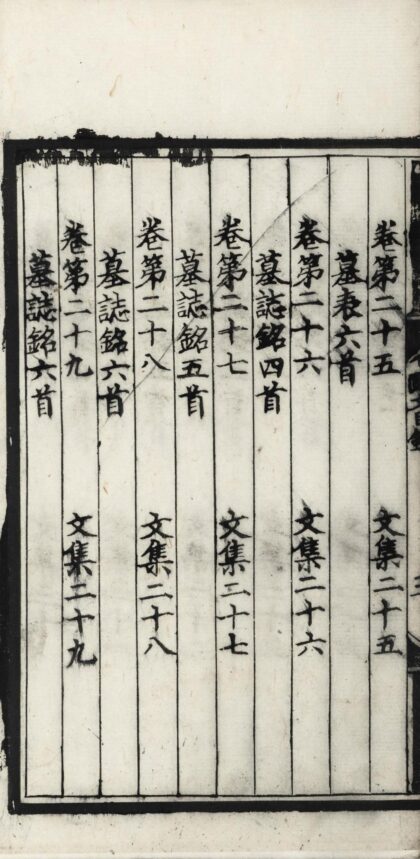 卷第二十五 文集二十五
墓表六首
卷第二十六 文集二十六
墓誌銘四首
卷第二十七 文集二十七
墓誌銘五首
卷第二十八 文集二十八
墓誌銘六首
卷第二十九 文集二十九
墓誌銘六首